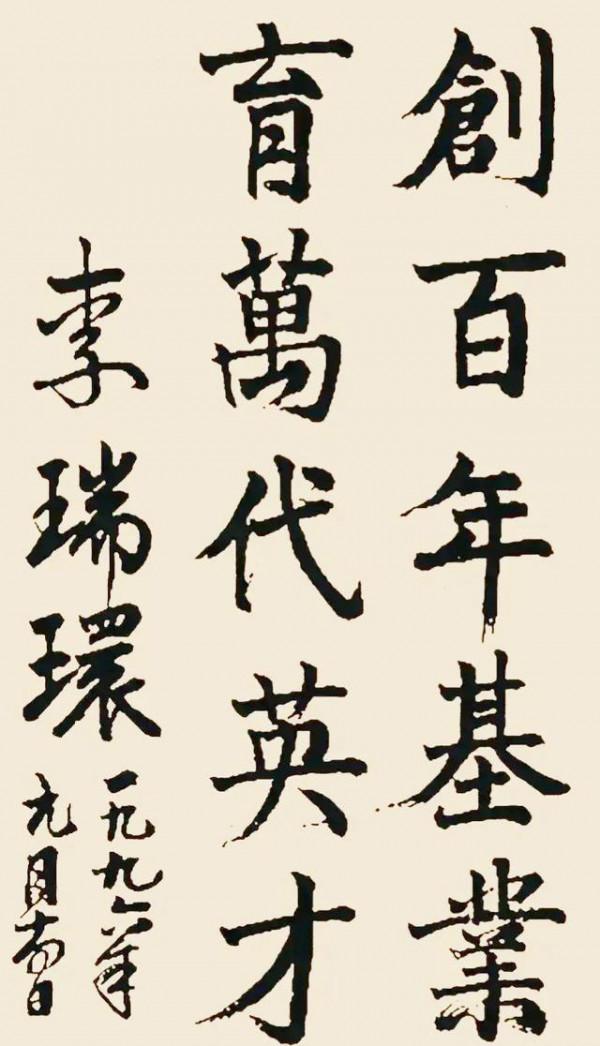 創百年基業
育萬代英才
李瑞環
一九九六年
月日